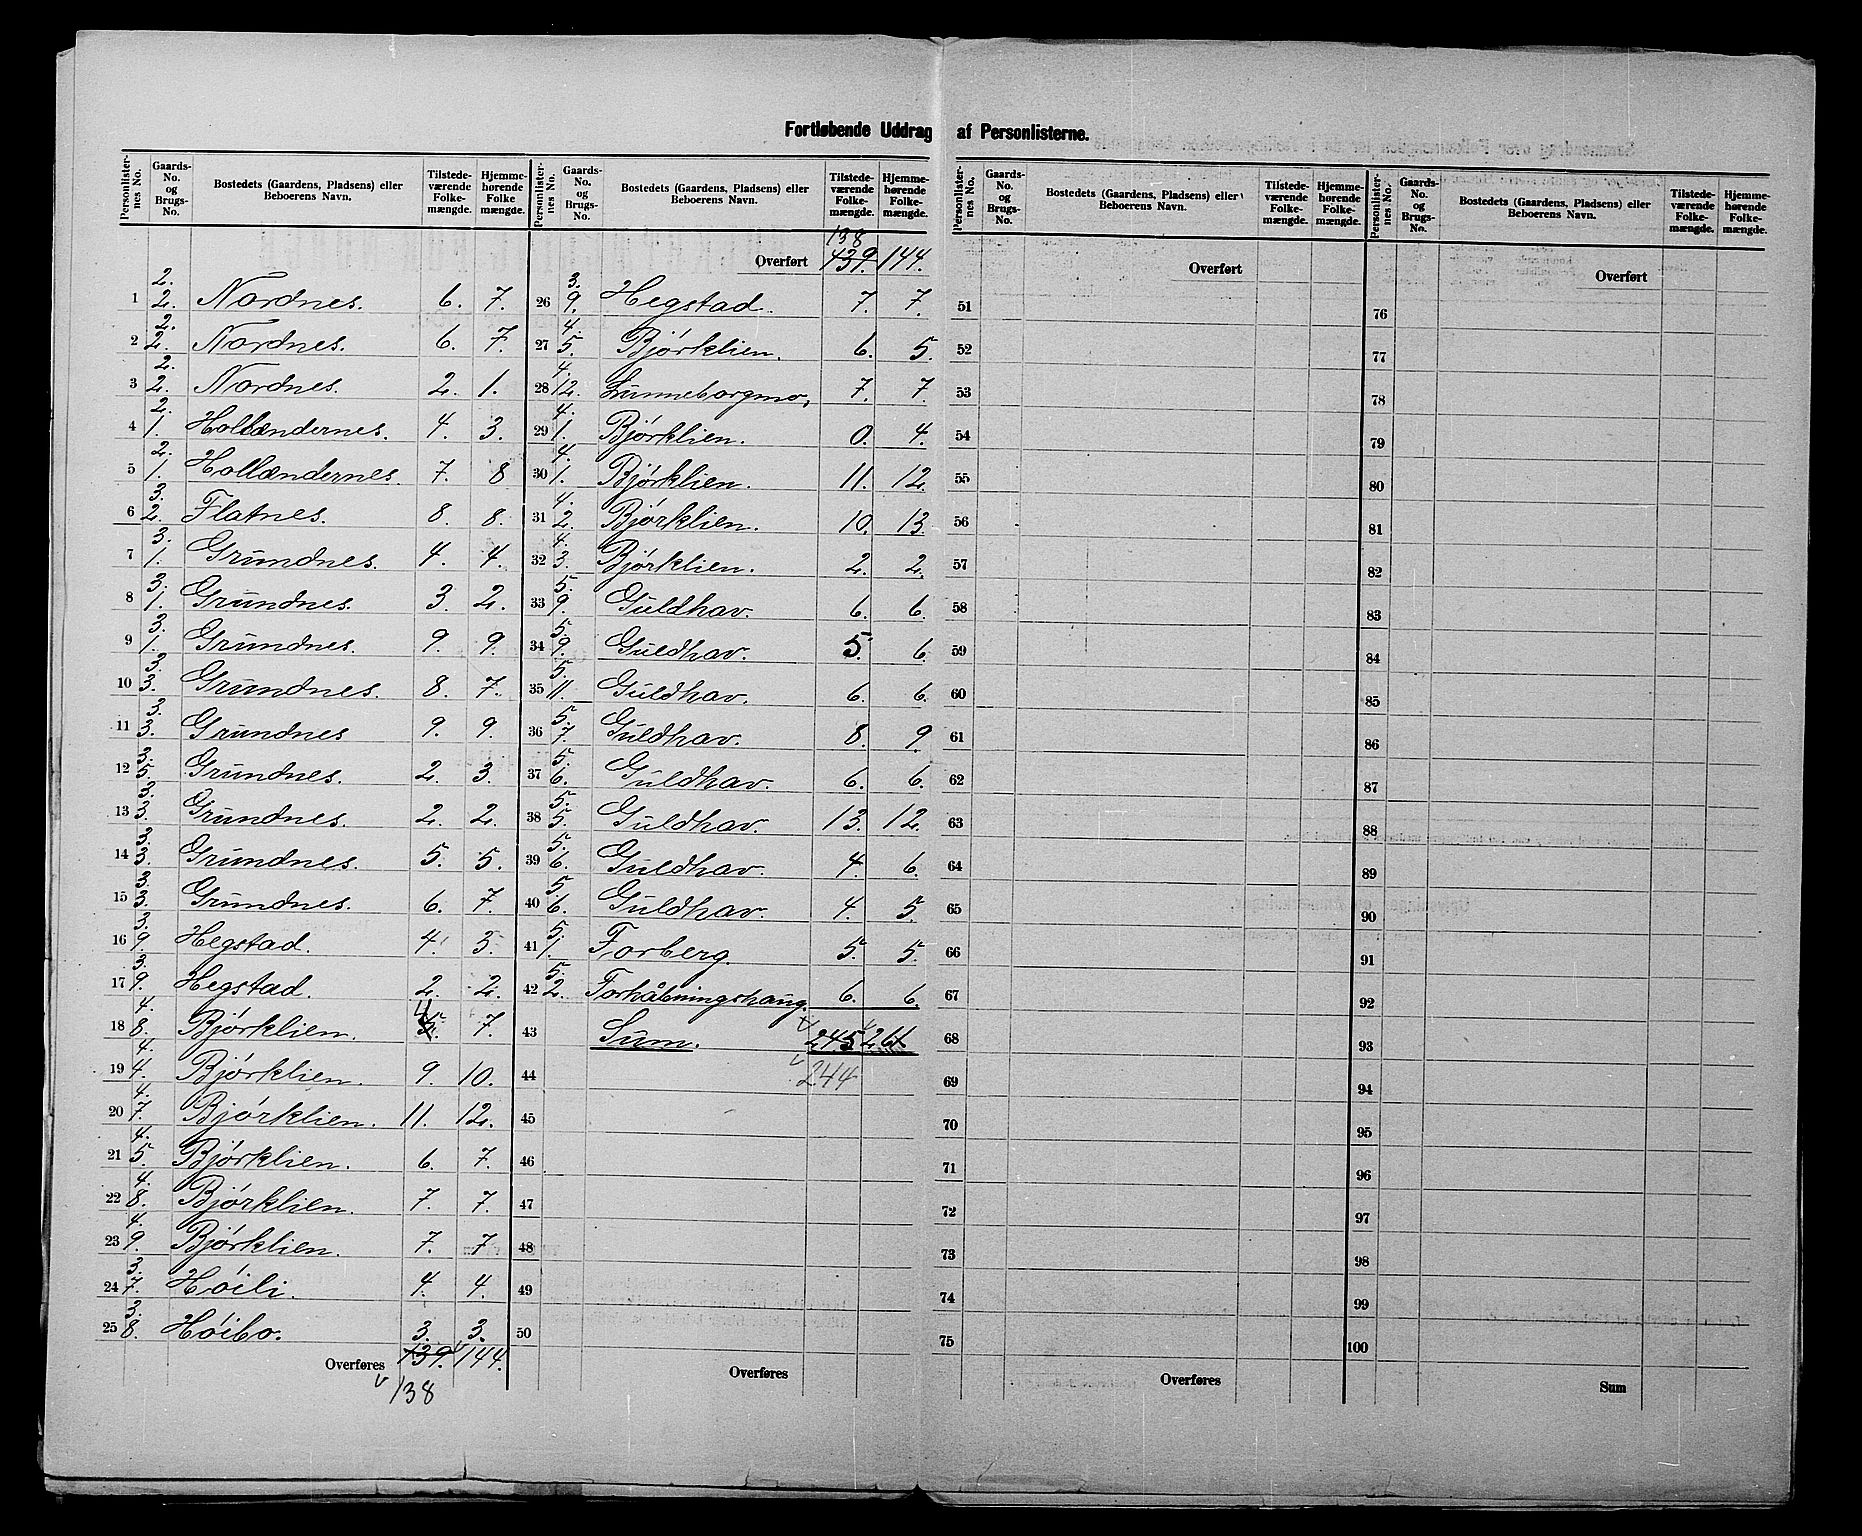 Fortløbende Uddrag af Personlisterne.
Personlisternes No. | Gaards-No. og Brugs-No. | Bostedets (Gaardens, Pladsens) eller Beboerens Navn. | Tilstedeværende Folkemængde. | Hjemmehørende Folkemængde.
1 | 2. 2. | Nordnes. | 6. | 7.
2 | 2. 2. | Nordnes. | 6. | 7.
3 | 2. 2. | Nordnes. | 2. | 1.
4 | 2. 1. | Hollændernes. | 4. | 3.
5 | 2. 1. | Hollændernes. | 7. | 8
6 | 3. 2. | Flatnes. | 8. | 8.
7 | 3. 1. | Grundnes. | 4. | 4.
8 | 3. 1. | Grundnes. | 3. | 2.
9 | 3. 1. | Grundnes. | 9. | 9.
10 | 3. 3. | Grundnes. | 8. | 7.
11 | 3. 3. | Grundnes | 9. | 9.
12 | 3. 5. | Grundnes. | 2. | 3.
13 | 3. 3. | Grundnes. | 2. | 2.
14 | 3. 3. | Grundnes. | 5. | 5.
15 | 3. 3. | Grundnes. | 6. | 7.
16 | 3. 9. | Hegstad. | 4. | 3.
17 | 3. 9. | Hegstad. | 2. | 2.
18 | 4. 8. | Bjørklien. | 4 | 7.
19 | 4. 4. | Bjørklien. | 9. | 10.
20 | 4. 7. | Bjørklien. | 11. | 12.
21 | 4. 5. | Bjørklien. | 6. | 7.
22 | 4. 8. | Bjørklien. | 7. | 7.
23 | 4. 9. | Bjørklien. | 7. | 7
24 | 3. 7. | Høili. | 4. | 4.
25 | 3. 8. | Høibo. | 3. | 3.
Overføres | 139. | 144.
138
Personlisternes No. | Gaards-No. og Brugs-No. | Bostedets (Gaardens, Pladsens) eller Beboerens Navn. | Tilstedeværende Folkemængde. | Hjemmehørende Folkemængde.
138
Overført | 139. | 144.
26 | 3. 9. | Hegstad. | 7. | 7.
27 | 4. 5. | Bjørklien. | 6. | 5.
28 | 4. 12. | Lunneborgmo, | 7. | 7.
29 | 4. 1. | Bjørklien. | 0. | 4.
30 | 4. 1. | Bjørklien. | 11. | 12.
31 | 4. 2. | Bjørklien. | 10. | 13.
32 | 4. 3. | Bjørklien. | 2. | 2.
33 | 5. 9. | Guldhav. | 6. | 6.
34 | 5. 9. | Guldhav. | 5. | 6.
35 | 5. 11. | Guldhav. | 6. | 6.
36 | 5. 7. | Guldhav. | 8. | 9.
37 | 5. 6. | Guldhav. | 6. | 6.
38 | 5. 5. | Guldhav. | 13. | 12.
39 | 5. 6. | Guldhav. | 4. | 6.
40 | 5. 6. | Guldhav. | 4. | 5.
41 | 5. 1. | Forberg. | 5. | 5.
42 | 5. 2. | Forhåbningshaug. | 6. | 6.
43 | Sum. | 245 | 261.
44 | 244
45
46
47
48
49
50
Overføres
Personlisternes No. | Gaards-No. og Brugs-No. | Bostedets (Gaardens, Pladsens) eller Beboerens Navn. | Tilstedeværende Folkemængde. | Hjemmehørende Folkemængde.
Overført
51
52
53
54
55
56
57
58
59
60
61
62
63
64
65
66
67
68
69
70
71
72
73
74
75
Overføres
Personlisternes No. | Gaards-No. og Brugs-No. | Bostedets (Gaardens, Pladsens) eller Beboerens Navn. | Tilstedeværende Folkemængde. | Hjemmehørende Folkemængde.
Overført
76
77
78
79
80
81
82
83
84
85
86
87
88
89
90
91
92
93
94
95
96
97
98
99
100
Sum